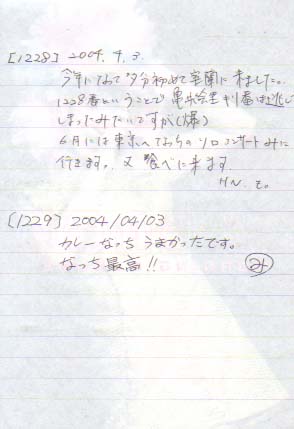 [1228] 2004.4.3.
今年になって多分初めて室蘭に来ました。
1228番ということで亀井絵里キリ番は逃して
しまったみたいですが(爆)
6月には東京へなっちのソロコンサートみに
行きます。又 食べに来ます
HN. と。
[1229] 2004/04/03
カレーなっち うまかったです。
なっち最高!! み